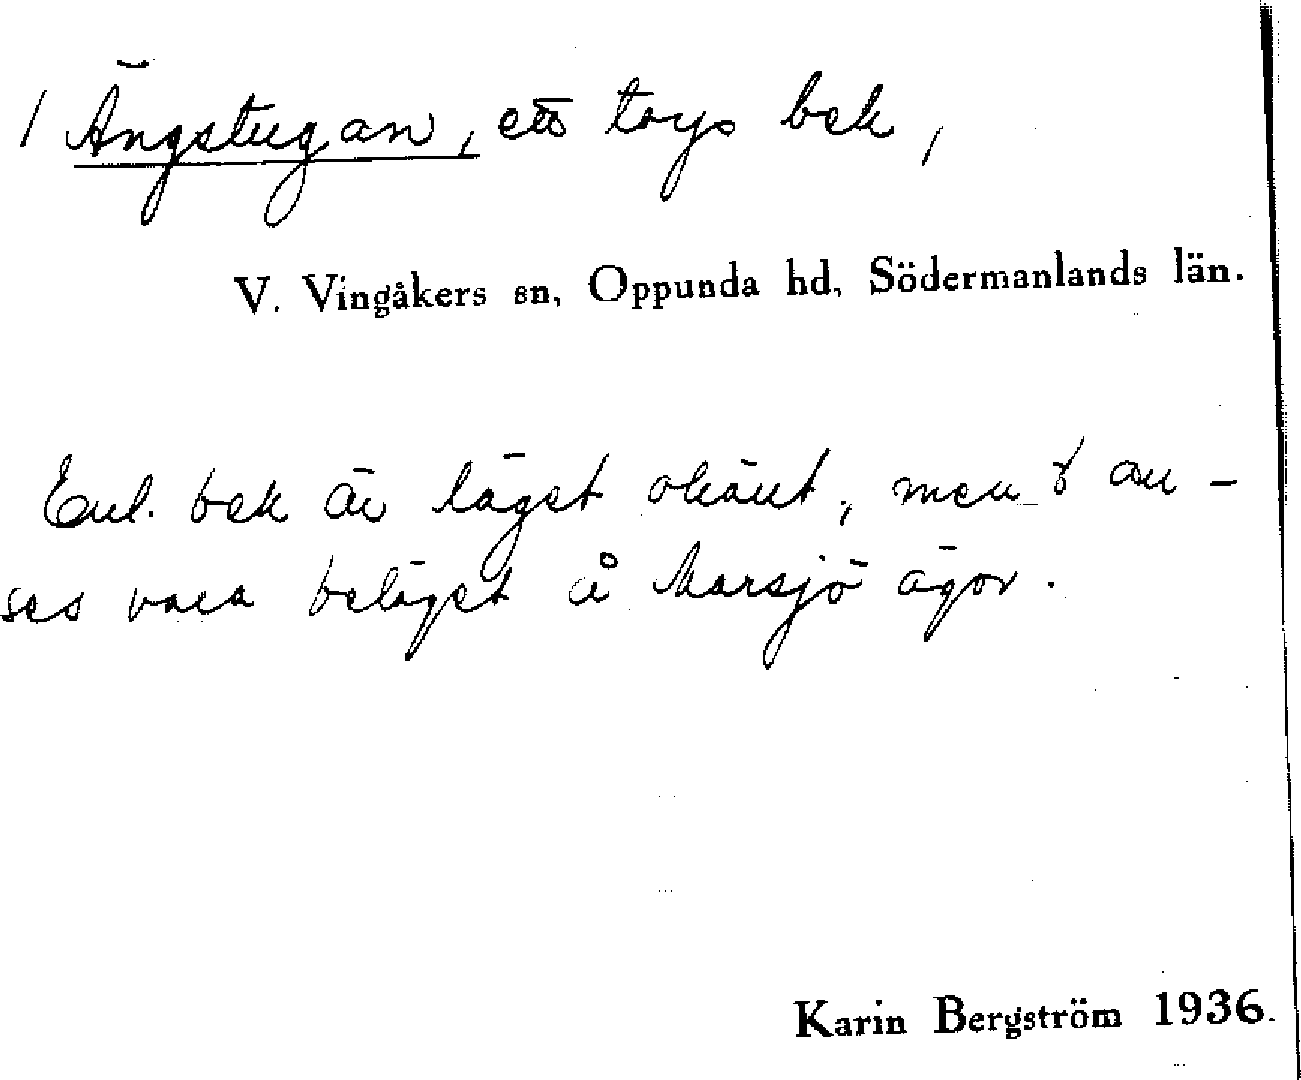 / Ängstugan, ett torps bek,
V. Vingåkers sn, Oppunda hd, Södermanlands län.
Enl. bek är läget okänt, men d an-
ses vara beläget å Marsjö ägor.
Karin Bergström 1936.